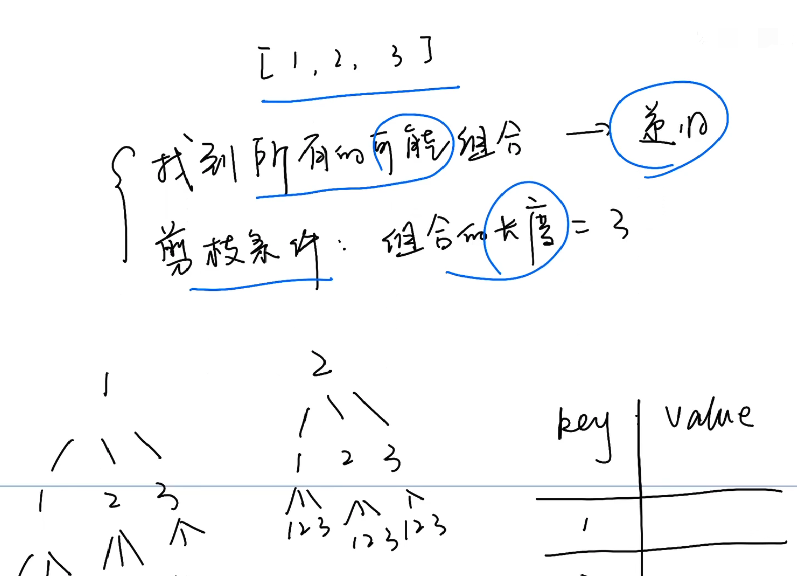 [1, 2, 3]
找到所有的可能组合 → 递归
剪枝条件: 组合的长度 = 3
1 2
1 2 3 1 2 3
1 2 3 1 2 3 1 2 3
key value
1